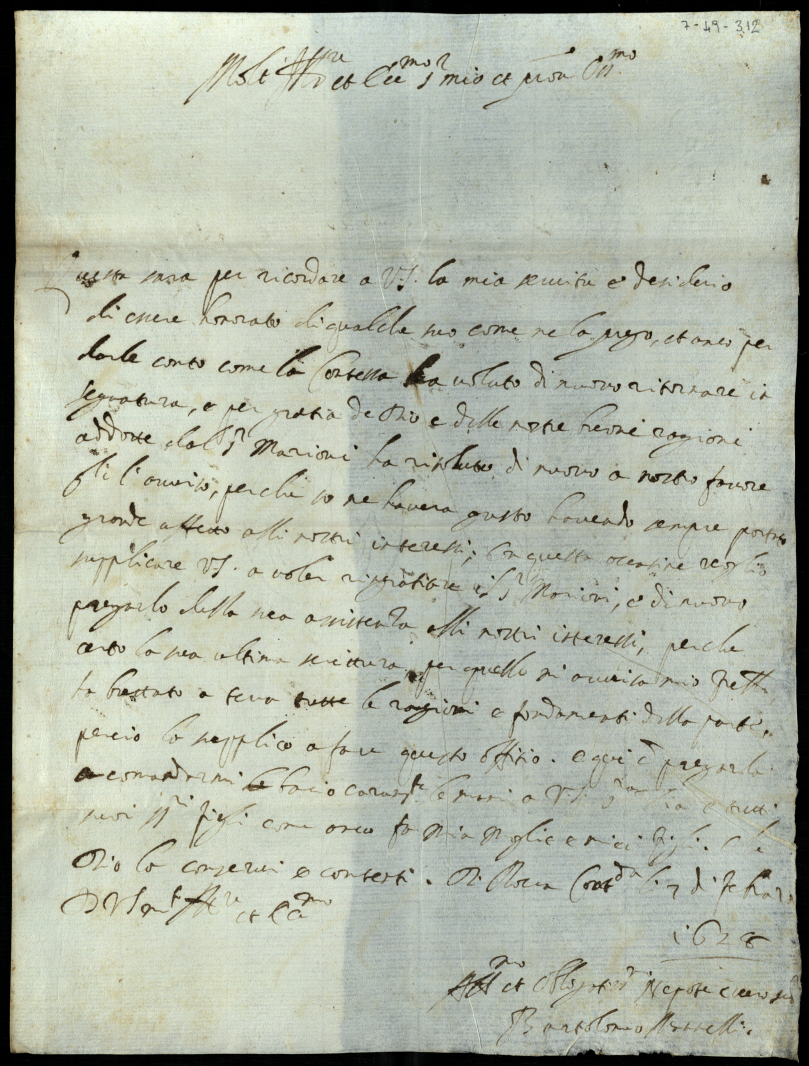 7-49-312
Molt Ill.re et Ecc.mo S.r mio et pron Oss.mo
Questa sara per ricordare a V.S. la mia servitu e desiderio
di essere honorato di qualche suo come ne la prego, et anco per
darle conto come la Contessa ha voluto di nuovo ritornare in
segnatura, e per gratia de Dio e delle nostre buone ragioni
addotte dal S.r Marioni ha risoluto di nuovo a nostro favore
gli l'aviso, perche so ne havera gusto havendo sempre portato
grande affetto alli nostri interessi; con questa occasione voglio
supplicare V.S. a voler ringratiare il S.r Marioni, e di nuovo
pregarlo della sua assistenza alli nostri interessi, perche
certo la sua ultima scrittura, per quello mi avvisa mio
ha buttato a terra tutte le ragioni e fondamenti della parte,
percio lo supplico a fare questo offitio. e qui c pregarla
a comandarmi le bacio le mani a V.S. e tutti
suoi ss.ri figli come anco fa mia moglie e miei figli. che
Dio la conservi e contenti. Di Rocca Cont.da li 7 di Febraro
D V.S. m.t Ill.re et Ecc.mo
1628
Aff.mo et obligat.mo Nepote e ser.re
Bartolomeo